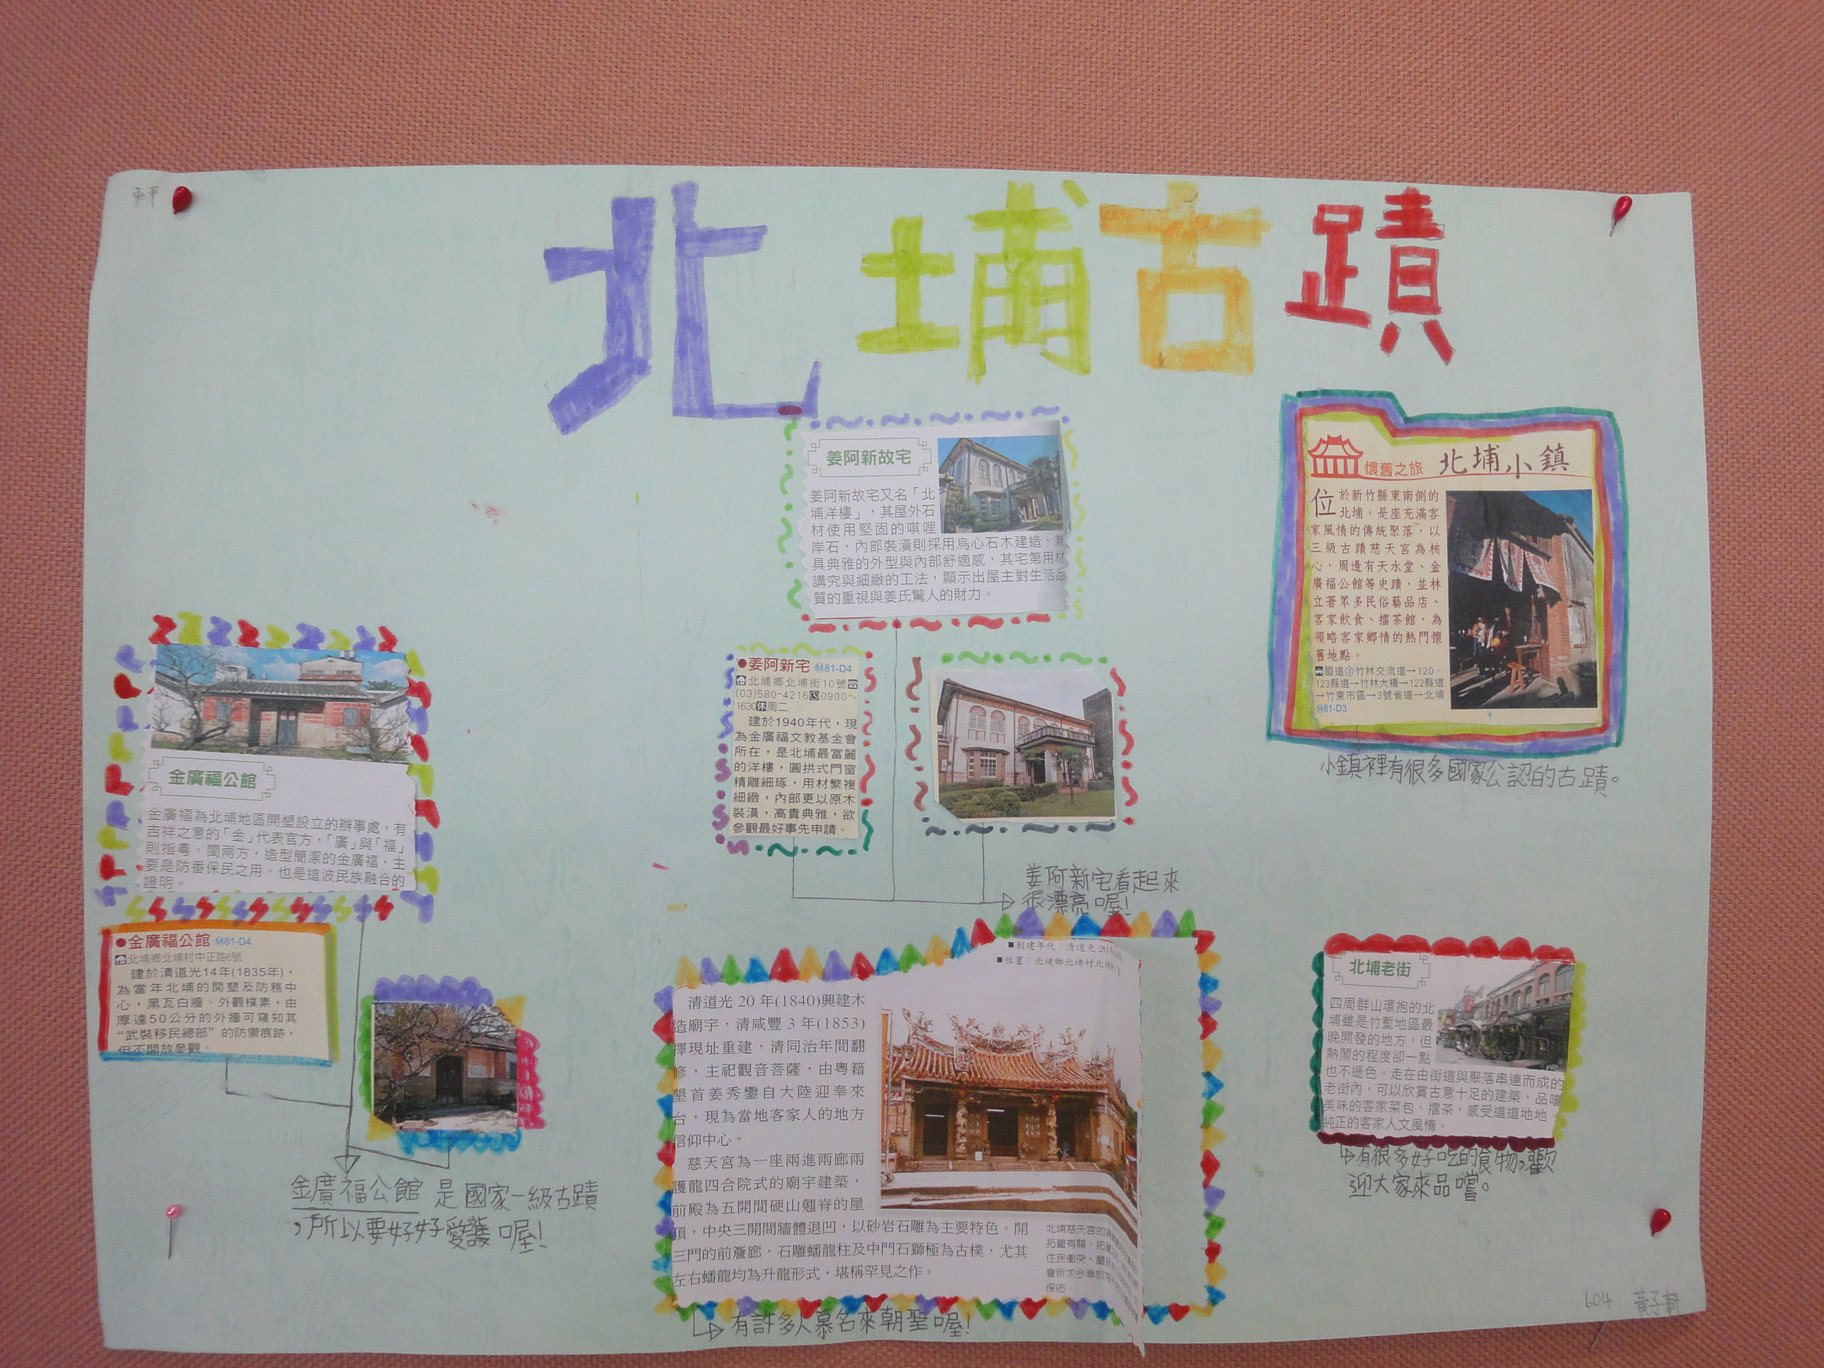 北埔古蹟
姜阿新故宅
姜阿新故宅又名「北
埔洋樓」，其屋外石
材使用堅固的唭哩
岸石，內部裝潢則採用烏心石木建造，
具典雅的外型與內部舒適感，其宅第用材
講究與細緻的工法，顯示出屋主對生活品
質的重視與姜氏驚人的財力。
懷舊之旅 北埔小鎮
位於新竹縣東南側的
北埔，是座充滿客
家風情的傳統聚落，以
三級古蹟慈天宮為核
心，周邊有天水堂、金
廣福公館等史蹟，並林
立著眾多民俗藝品店、
客家飲食、擂茶館，為
領略客家鄉情的熱門懷
舊地點。
國道③竹林交流道→120、
123縣道→竹林大橋→122縣道
→竹東市區→3號省道→北埔
M81-D3
小鎮裡有很多國家公認的古蹟。
●姜阿新宅 M81-D4
北埔鄉北埔街10號
(03)580-4216 0900～
1630 休周二
建於1940年代，現
為金廣福文教基金會
所在，是北埔最富麗
的洋樓，圓拱式門窗
精雕細琢，用材繁複
細緻，內部更以原木
裝潢，高貴典雅，欲
參觀最好事先申請。
姜阿新宅看起來
很漂亮喔!
金廣福公館
金廣福為北埔地區開墾設立的辦事處，有
吉祥之意的「金」代表官方，「廣」與「福」
則指粵、閩兩方，造型簡潔的金廣福，主
要是防番保民之用，也是這波民族融合的
證明。
●金廣福公館 M81-D4
北埔鄉北埔村中正路6號
建於清道光14年(1835年)，
為當年北埔的開墾及防務中
心，黑瓦白牆、外觀樸素，由
厚達50公分的外牆可窺知其
“武裝移民總部”的防禦痕跡，
但不開放參觀。
金廣福公館 是國家一級古蹟
，所以要好好愛護喔!
■創建年代：清道光20
■位置：北埔鄉北埔村北
清道光 20 年(1840)興建木
造廟宇，清咸豐 3 年(1853)
擇現址重建，清同治年間翻
修，主祀觀音菩薩，由粵籍
墾首姜秀鑾自大陸迎奉來
台，現為當地客家人的地方
信仰中心。
慈天宮為一座兩進兩廊兩
護龍四合院式的廟宇建築，
前殿為五開間硬山翹脊的屋
頂，中央三開間牆體退凹，以砂岩石雕為主要特色。開
三門的前簷廊，石雕蟠龍柱及中門石獅極為古樸，尤其
左右蟠龍均為升龍形式，堪稱罕見之作。
北埔慈天宮的
拓墾有關，拓
住民衝突，墾
會祈求
保佑
有許多人慕名來朝聖喔!
北埔老街
四周群山環抱的北
埔雖是竹塹地區最
晚開發的地方，但
熱鬧的程度卻一點
也不遜色。走在由街道與聚落串連而成的
老街內，可以欣賞古意十足的建築，品嚐
美味的客家菜包、擂茶，感受道道地地、
純正的客家人文風情。
有很多好吃的食物，歡
迎大家來品嚐。
604 黃子軒